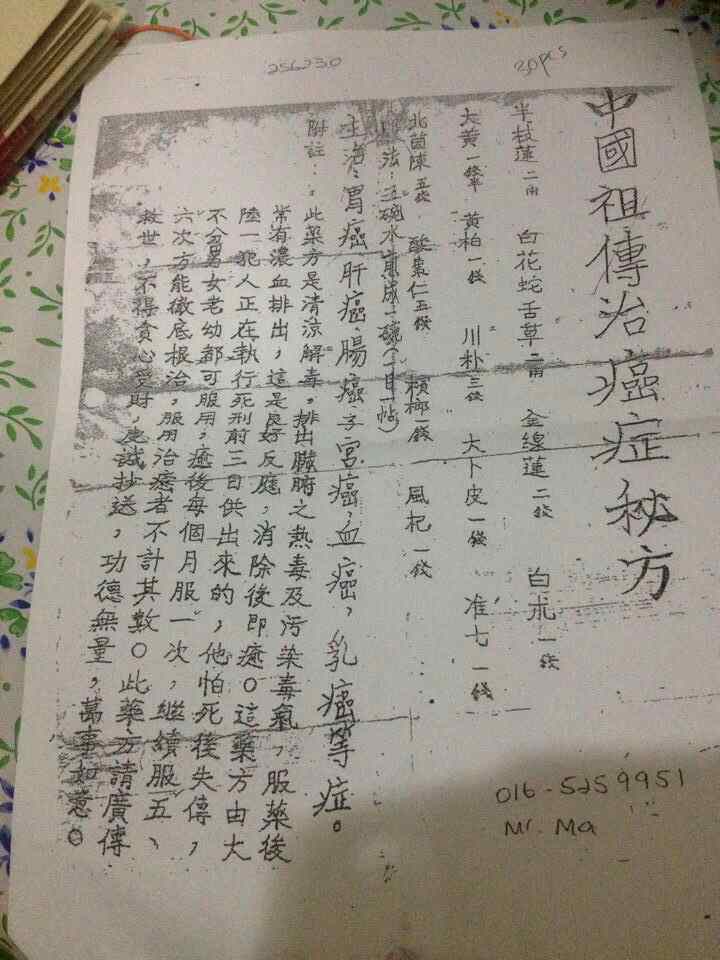 256230
30pcs
中國祖傳治癌症秘方
半枝蓮二兩 白花蛇舌草二兩 金線蓮二錢 白朮一錢
大黃一錢半 黃柏一錢 川朴三錢 大卜皮一錢 准七一錢
北茵陳五錢 酸棗仁五錢 檳榔一錢 風杞一錢
法:五碗水煎成一碗(一日一帖)
主治:胃癌、肝癌、腸癌、子宮癌,血癌,乳癌等症。
附註:此藥方是清涼解毒,排出臟腑之熱毒及污染毒氣,服藥後
常有濃血排出,這是良好反應,消除後即癒。這藥方由大
陸一犯人正在執行死刑前三日供出來的,他怕死後失傳,
不分男女老幼都可服用,癒後每個月服一次,繼續服五、
六次方能徹底根治,服用治癒者不計其數。此藥方請廣傳
救世,不得貪心受財,虔誠抄送,功德無量,萬事如意。
016-5259951
Mr. Ma